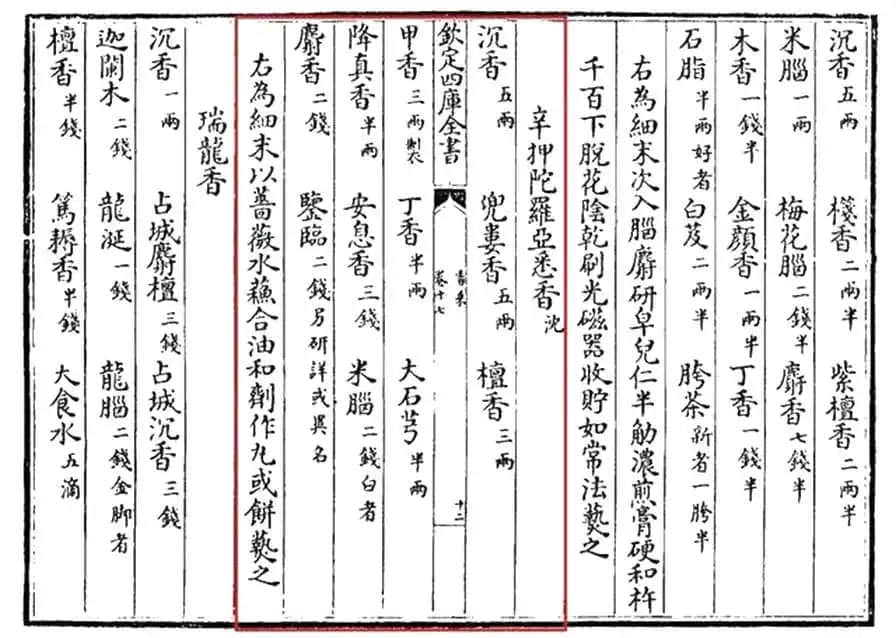 沉香五兩 棧香二兩半 紫檀香二兩半
米腦一兩 梅花腦二錢半 麝香七錢半
木香一錢半 金顏香一兩半 丁香一錢半
石脂半兩好者 白芨二兩半 胯茶新者一胯半
右為細末次入腦麝研皁兒仁半觔濃煎膏硬和杵
千百下脫花陰乾刷光磁器收貯如常法爇之
辛押陀羅亞悉香沈
沉香五兩 兜婁香五兩 檀香三兩
欽定四庫全書
香乘
卷十七
十二
甲香三兩製 丁香半兩 大石芎半兩
降真香半兩 安息香三錢 米腦二錢白者
麝香二錢 鑒臨二錢另研詳或異名
右為細末以薔薇水蘇合油和劑作丸或餅爇之
瑞龍香
沉香一兩 占城麝檀三錢 占城沉香三錢
迦闌木二錢 龍涎一錢 龍腦二錢金脚者
檀香半錢 篤耨香半錢 大食水五滴